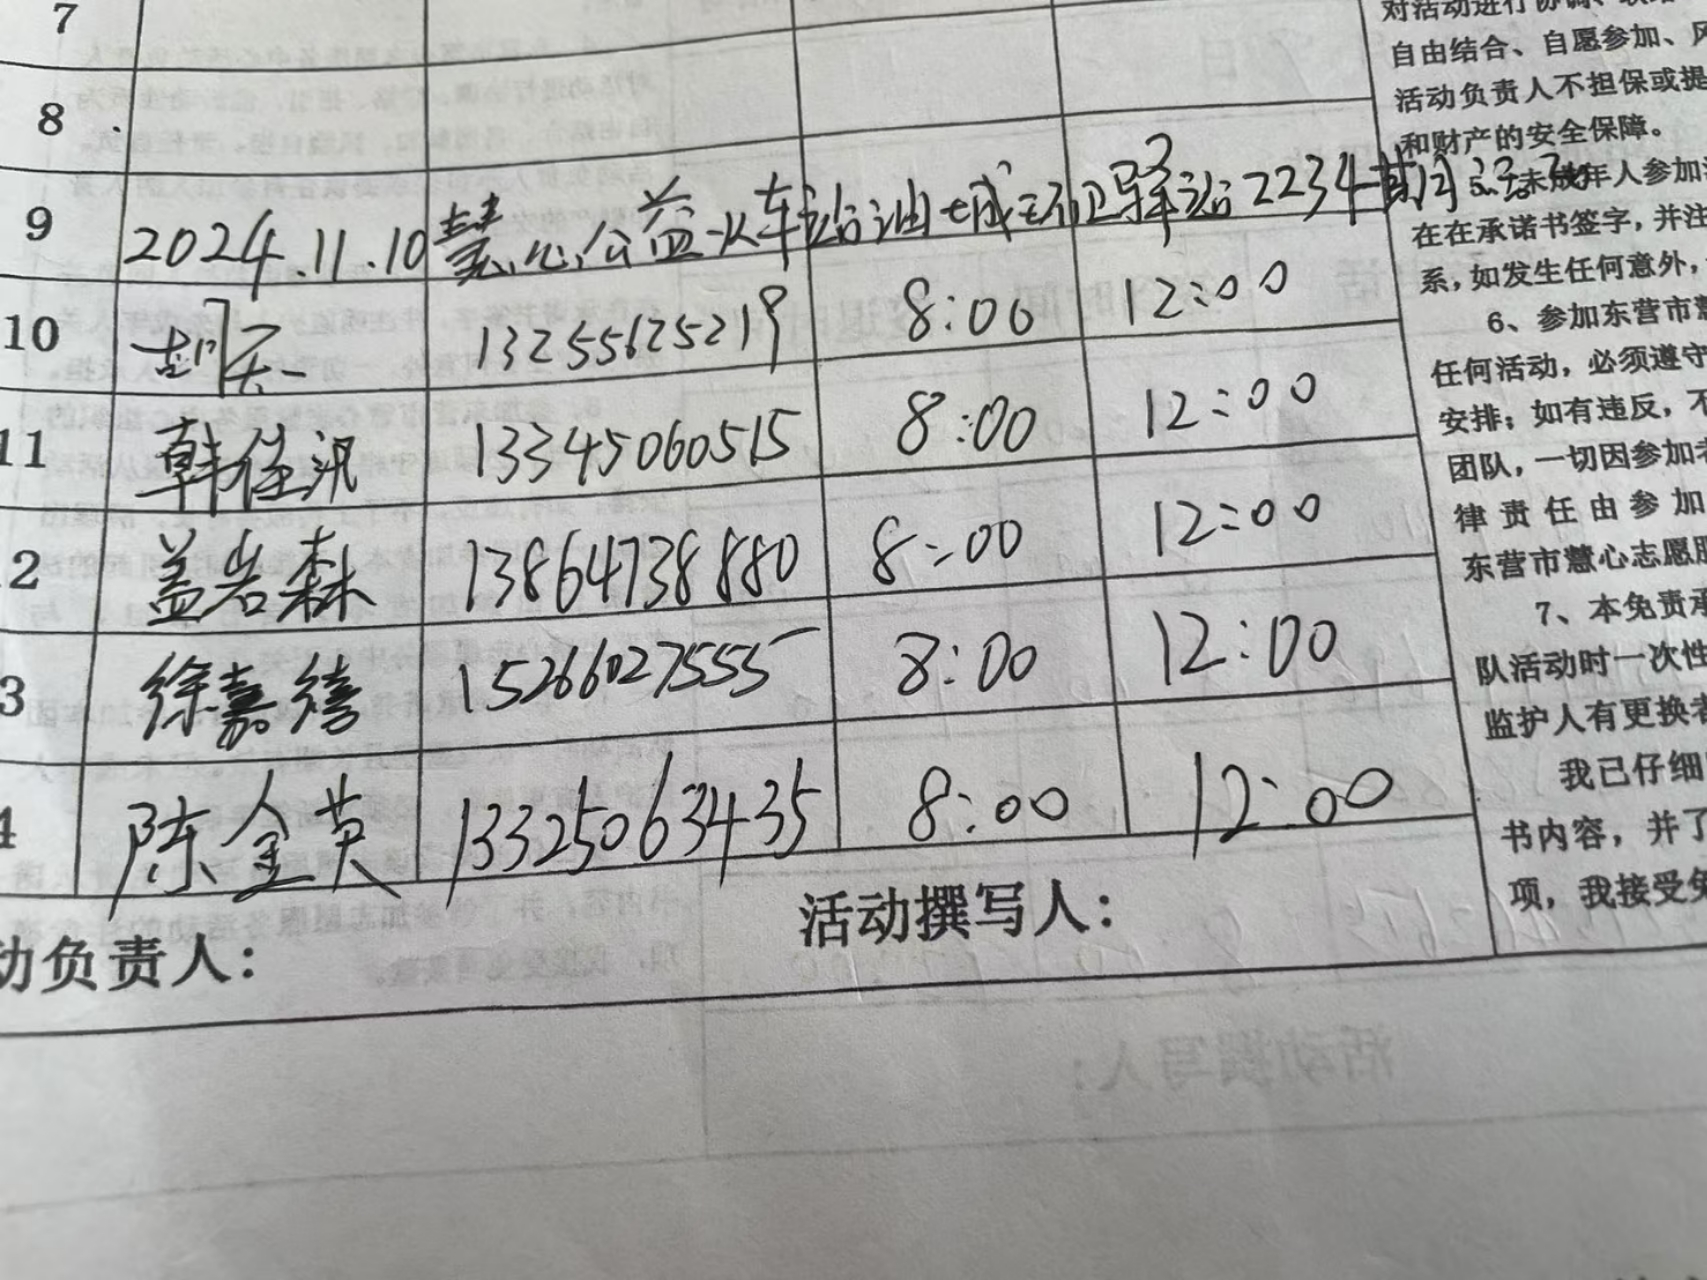 7
8
9 2024.11.10 慧心公益火车站油城环卫驿站2234期活动
10 13255625219 8:00 12:00
11 韩佳汛 13345060515 8:00 12:00
2 盖岩森 13864738880 8:00 12:00
3 徐嘉禧 15266027555 8:00 12:00
4 陈金英 13325063435 8:00 12:00
动负责人： 活动撰写人：
对活动进行协调、联络
自由结合、自愿参加、风
活动负责人不担保或提
和财产的安全保障。
未成年人参加活
在在承诺书签字，并注
系，如发生任何意外，
6、参加东营市慧
任何活动，必须遵守
安排；如有违反，不
团队，一切因参加者
律责任由参加
东营市慧心志愿服
7、本免责承
队活动时一次性
监护人有更换者
我已仔细
书内容，并了
项，我接受免
活动撰写人：